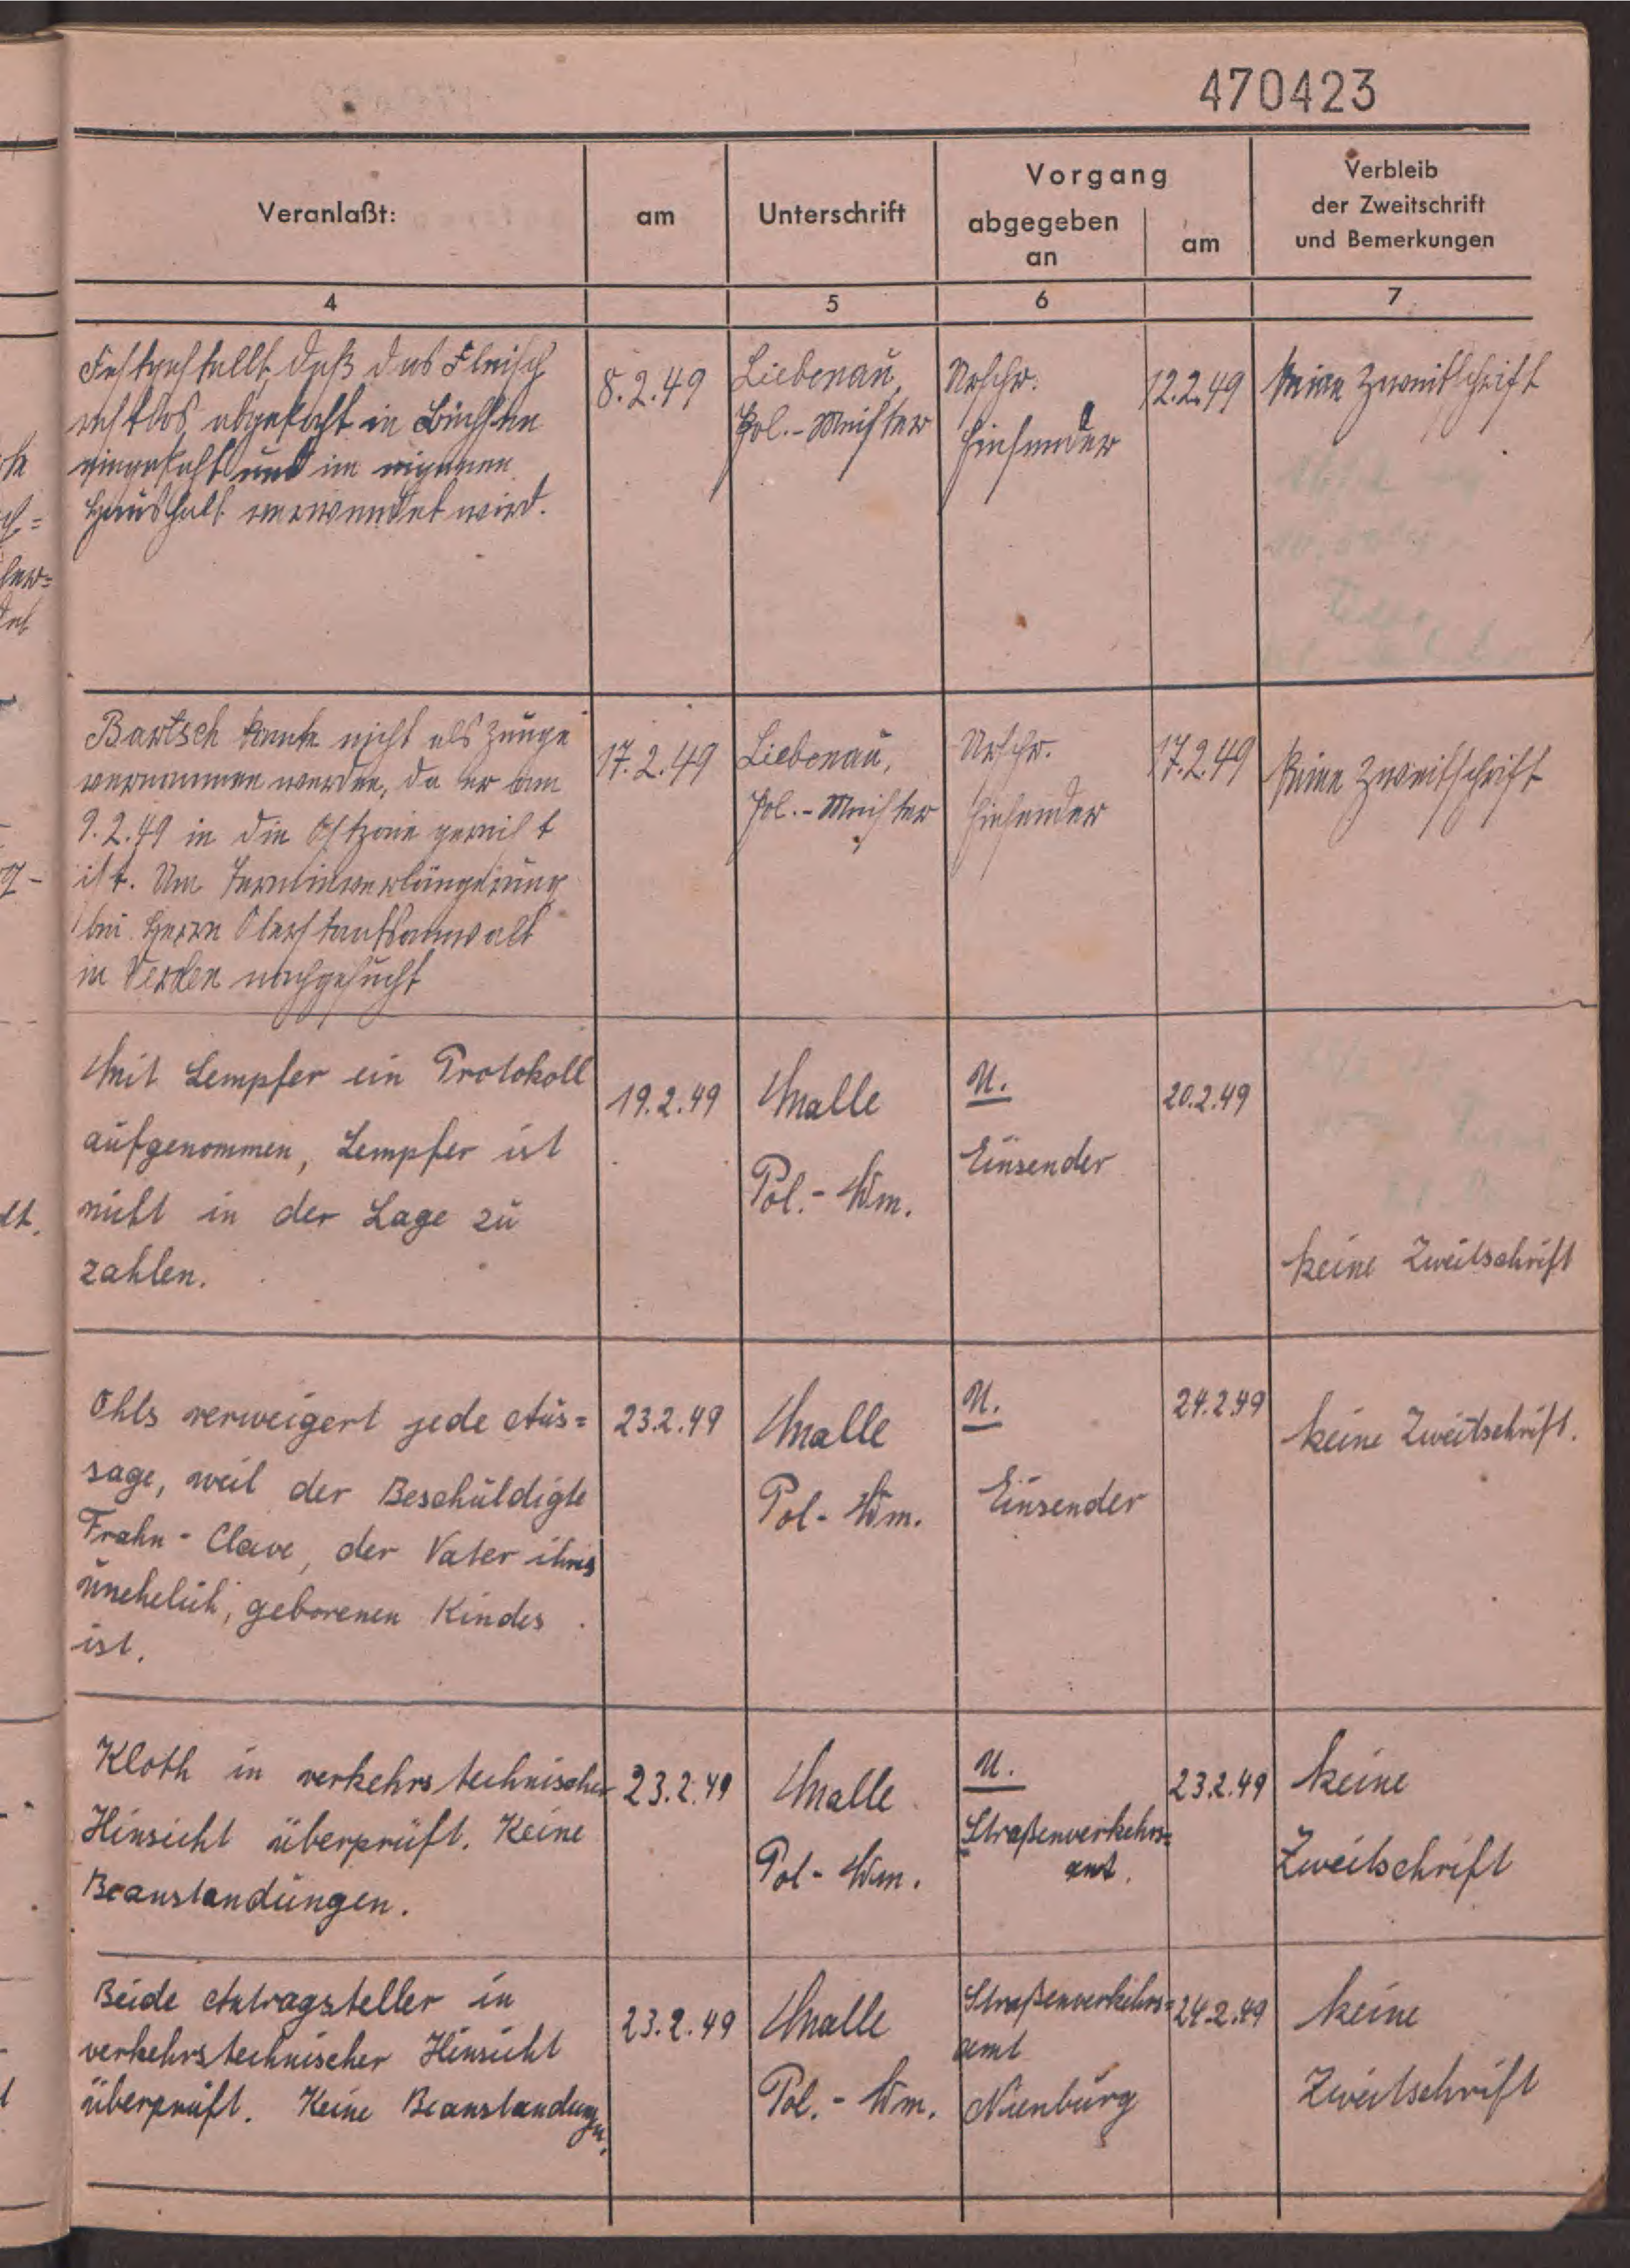 470423
Veranlaßt:
am
Unterschrift
Vorgang
abgegeben
an
am
Verbleib
der Zweitschrift
und Bemerkungen
4
5
6
7
Festgestellt, daß das Fleisch
restlos abgekocht in Büchsen
eingekocht und im eigenen
Haushalt verwendet wird.
8.2.49
Liebenau,
Pol.-Meister
Urschr.
Einsender
12.2.49
keine Zweitschrift
Bartsch konnte nicht als Zeuge
vernommen werden, da er am
9.2.49 in die Ostzone gereist
ist. Um Terminverlängerung
bei Herrn Oberstaatsanwalt
in Verden nachgesucht
17.2.49
Liebenau,
Pol.-Meister
Urschr.
Einsender
17.2.49
keine Zweitschrift
Mit Lempfer ein Protokoll
aufgenommen, Lempfer ist
nicht in der Lage zu
zahlen.
19.2.49
Malle
Pol.-Wm.
U.
Einsender
20.2.49
keine Zweitschrift
Ohls verweigert jede Aus=
sage, weil der Beschuldigte
Frahn-Clave, der Vater ihres
unehelich, geborenen Kindes
ist.
23.2.49
Malle
Pol-Wm.
U.
Einsender
24.2.49
keine Zweitschrift.
Kloth in verkehrstechnischer
Hinsicht überprüft. Keine
Beanstandungen.
23.2.49
Malle
Pol-Wm.
U.
Straßenverkehrs=
amt.
23.2.49
keine
Zweitschrift
Beide Antragsteller in
verkehrstechnischer Hinsicht
überprüft. Keine Beanstandungen.
23.2.49
Malle
Pol.-Wm.
Straßenverkehrs=
amt
Nienburg
24.2.49
keine
Zweitschrift